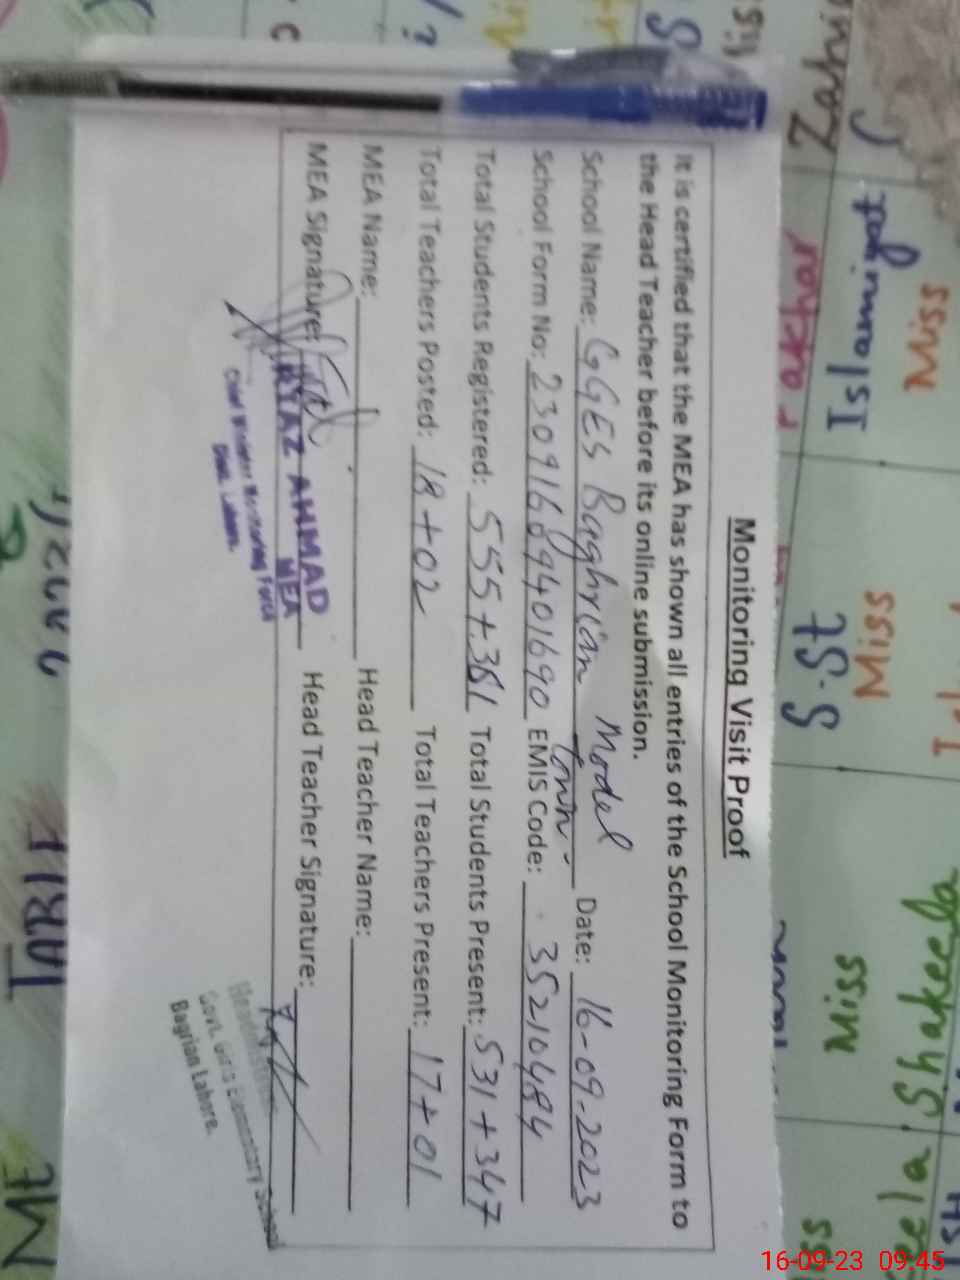 Monitoring Visit Proof
It is certified that the MEA has shown all entries of the School Monitoring Form to
the Head Teacher before its online submission.
School Name: GGES Baghrian Model Town- Date: 16-09-2023
School Form No: 23091689401690 EMIS Code: 35210484
Total Students Registered: 555+381 Total Students Present: 531+347
Total Teachers Posted: 18+02 Total Teachers Present: 17+01
MEA Name: Head Teacher Name:
MEA Signature: Head Teacher Signature:
AYAZ AHMAD
MEA
Chief Minister Monitoring Force
Distt. Lahore.
Headmistress
Govt. Girls Elementary School
Bagrian Lahore.
Zahi
Islamiyat
Miss
S.St
Miss
Miss
Shakeela
eela
16-09-23 09:45